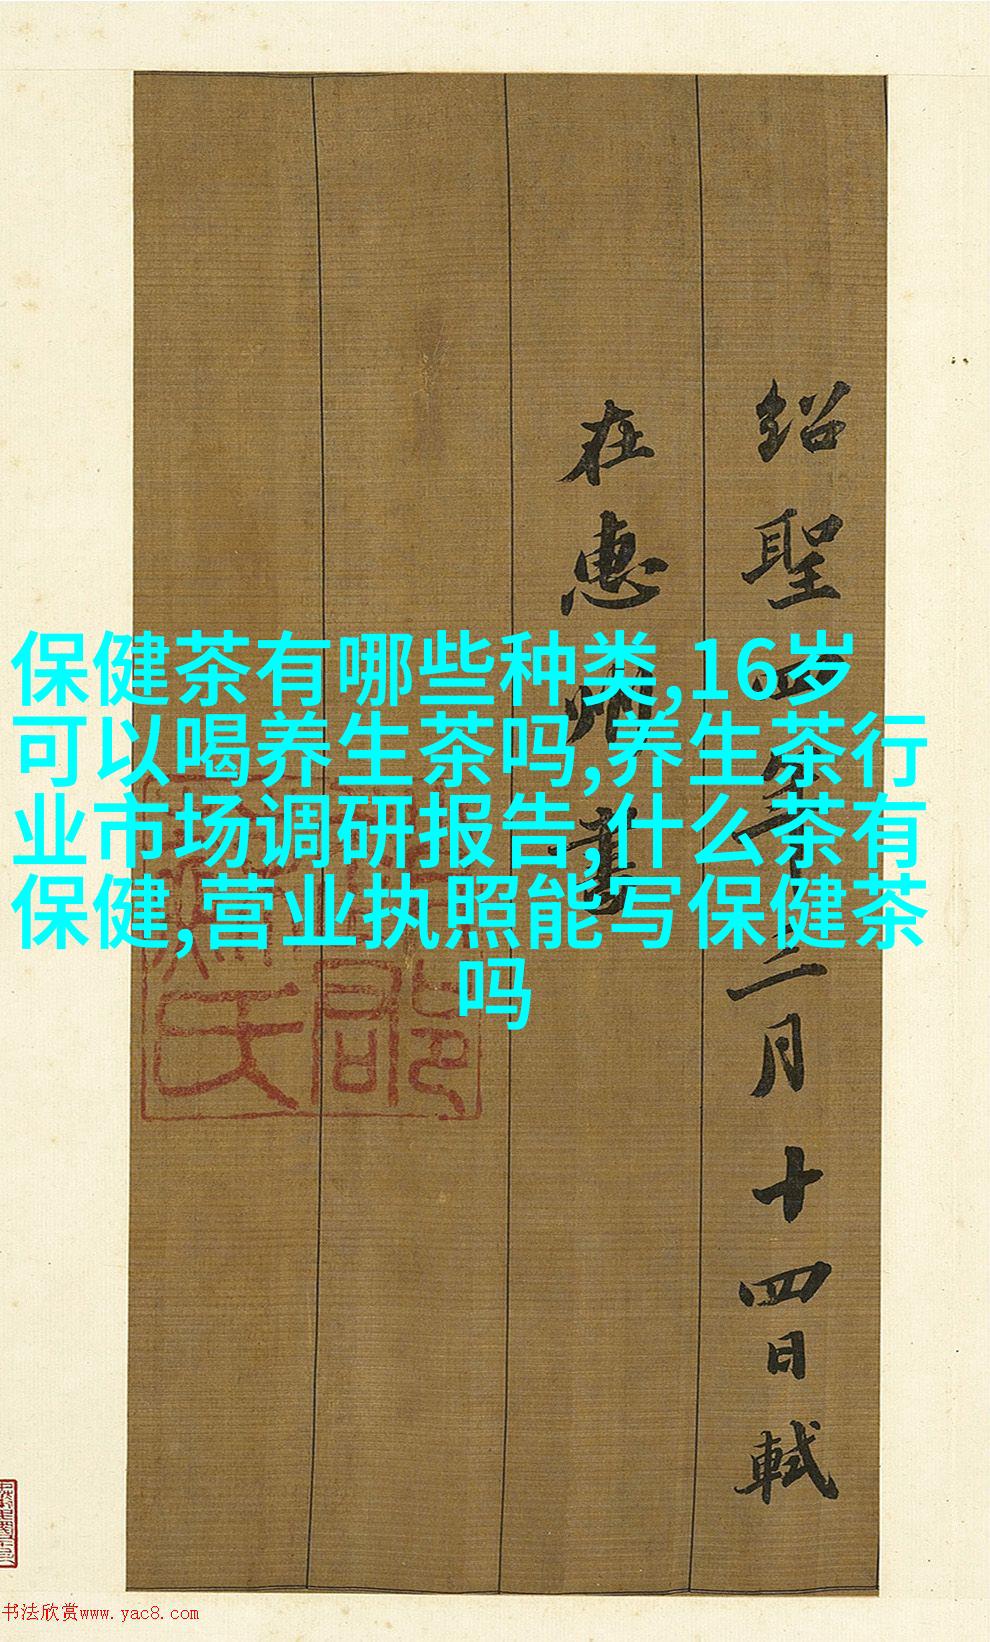 保健茶有哪些种类,16岁
可以喝养生茶吗,养生茶行
业市场调研报告,什么茶有
保健,营业执照能写保健茶
吗
紹聖四年三月十四日軾
在惠州書
书法欣赏www.yac8.com